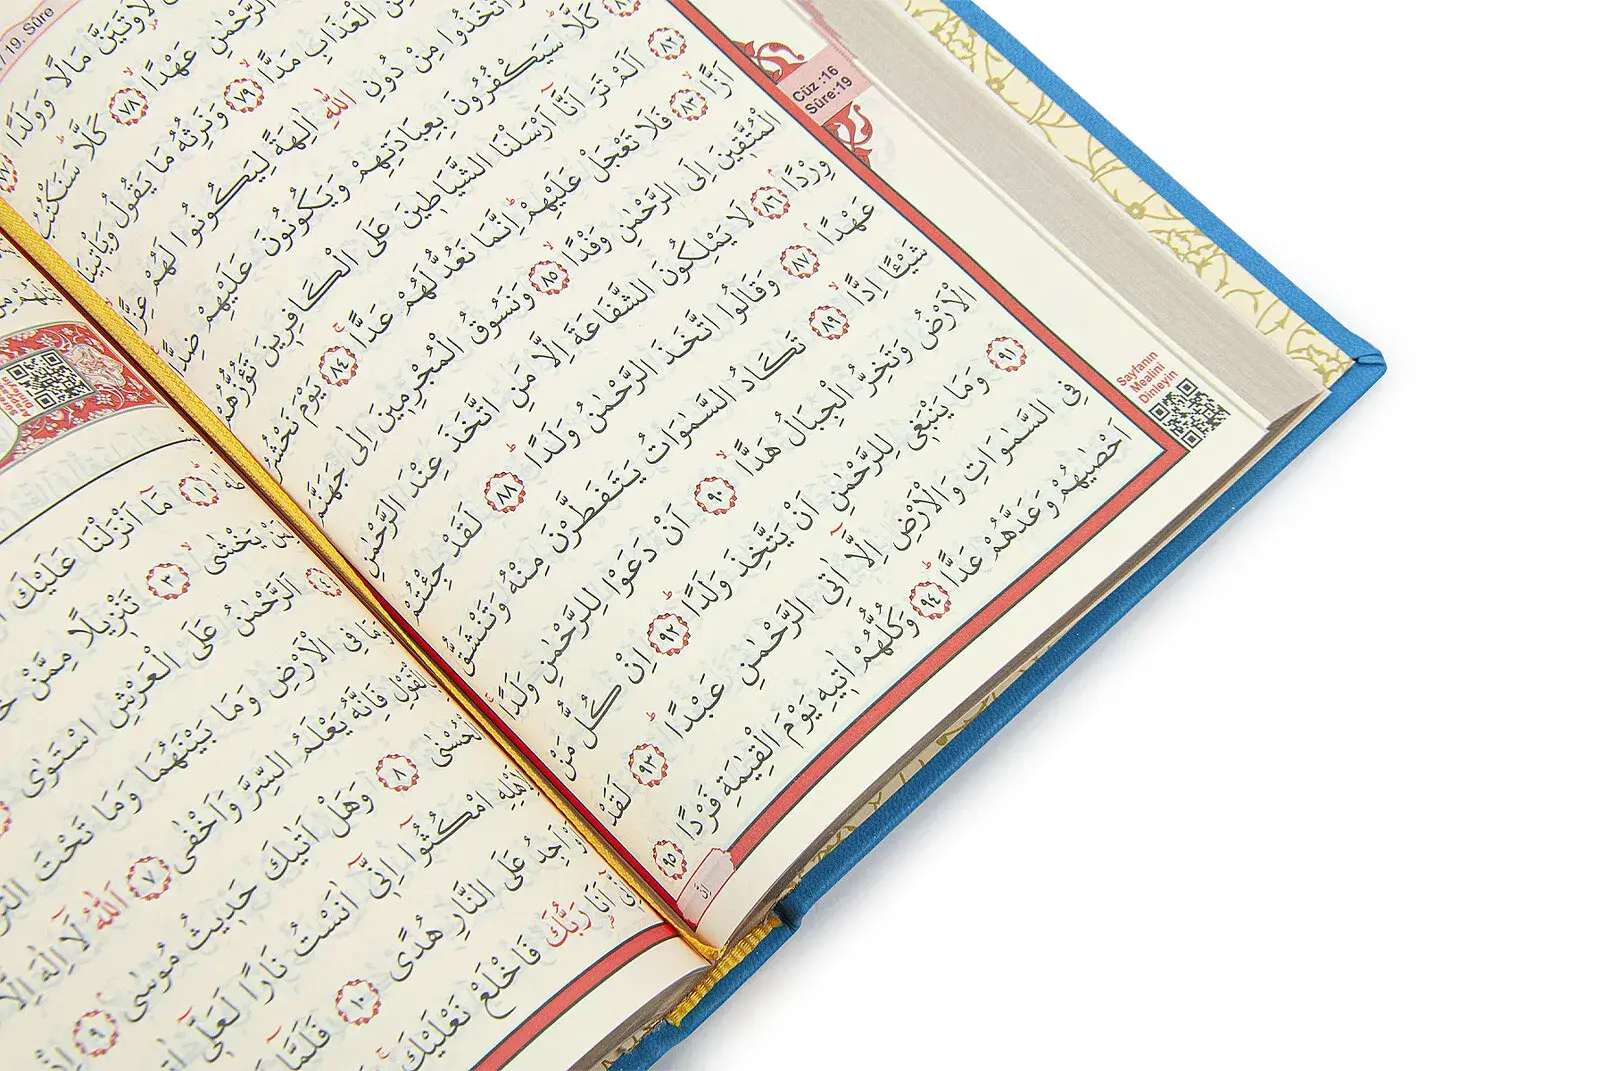 19. Sûre
Cüz :16
Sûre:19
لَاُوتَيَنَّ مَالًا وَوَلَدًا ﴿٧٧﴾
الرَّحْمٰنِ عَهْدًا ﴿٧٨﴾ كَلَّا سَنَكْتُبُ
الْعَذَابِ مَدًّا ﴿٧٩﴾ وَنَرِثُهُ مَا يَقُولُ وَيَأْتِينَا
اتَّخَذُوا مِنْ دُونِ اللّٰهِ اٰلِهَةً لِيَكُونُوا لَهُمْ عِزًّا
كَلَّا سَيَكْفُرُونَ بِعِبَادَتِهِمْ وَيَكُونُونَ عَلَيْهِمْ ضِدًّا
﴿٨٢﴾ اَلَمْ تَرَ اَنَّٓا اَرْسَلْنَا الشَّيَاطِينَ عَلَى الْكَافِرِينَ تَؤُزُّهُمْ
اَزًّا ﴿٨٣﴾ فَلَا تَعْجَلْ عَلَيْهِمْ اِنَّمَا نَعُدُّ لَهُمْ عَدًّا ﴿٨٤﴾ يَوْمَ نَحْشُرُ
الْمُتَّقِينَ اِلَى الرَّحْمٰنِ وَفْدًا ﴿٨٥﴾ وَنَسُوقُ الْمُجْرِمِينَ اِلٰى جَهَنَّمَ
وِرْدًا ﴿٨٦﴾ لَا يَمْلِكُونَ الشَّفَاعَةَ اِلَّا مَنِ اتَّخَذَ عِنْدَ الرَّحْمٰنِ
عَهْدًا ﴿٨٧﴾ وَقَالُوا اتَّخَذَ الرَّحْمٰنُ وَلَدًا ﴿٨٨﴾ لَقَدْ جِئْتُمْ
شَيْئًا اِدًّا ﴿٨٩﴾ تَكَادُ السَّمٰوَاتُ يَتَفَطَّرْنَ مِنْهُ وَتَنْشَقُّ
الْاَرْضُ وَتَخِرُّ الْجِبَالُ هَدًّا ﴿٩٠﴾ اَنْ دَعَوْا لِلرَّحْمٰنِ وَلَدًا
﴿٩١﴾ وَمَا يَنْبَغِي لِلرَّحْمٰنِ اَنْ يَتَّخِذَ وَلَدًا ﴿٩٢﴾ اِنْ كُلُّ مَنْ
فِي السَّمٰوَاتِ وَالْاَرْضِ اِلَّٓا اٰتِي الرَّحْمٰنِ عَبْدًا ﴿٩٣﴾ لَقَدْ
اَحْصٰيهُمْ وَعَدَّهُمْ عَدًّا ﴿٩٤﴾ وَكُلُّهُمْ اٰتِيهِ يَوْمَ الْقِيٰمَةِ فَرْدًا ﴿٩٥﴾
Sayfanın
Mealini
Dinleyin
﴿١﴾ مَٓا اَنْزَلْنَا عَلَيْكَ
لِمَنْ يَخْشٰى ﴿٣﴾ تَنْزِيلًا مِمَّنْ
﴿٤﴾ اَلرَّحْمٰنُ عَلَى الْعَرْشِ اسْتَوٰى
وَمَا فِي الْاَرْضِ وَمَا بَيْنَهُمَا وَمَا تَحْتَ
بِالْقَوْلِ فَاِنَّهُ يَعْلَمُ السِّرَّ وَاَخْفٰى ﴿٧﴾ اَللّٰهُ لَٓا اِلٰهَ اِلَّا
الْحُسْنٰى ﴿٨﴾ وَهَلْ اَتٰيكَ حَدِيثُ مُوسٰى ﴿٩﴾ اِذْ
لِاَهْلِهِ امْكُثُٓوا اِنِّٓي اٰنَسْتُ نَارًا لَعَلِّٓي
اَوْ اَجِدُ عَلَى النَّارِ هُدًى ﴿١٠﴾ فَلَمَّٓا
اِنِّٓي اَنَا رَبُّكَ فَاخْلَعْ نَعْلَيْكَ